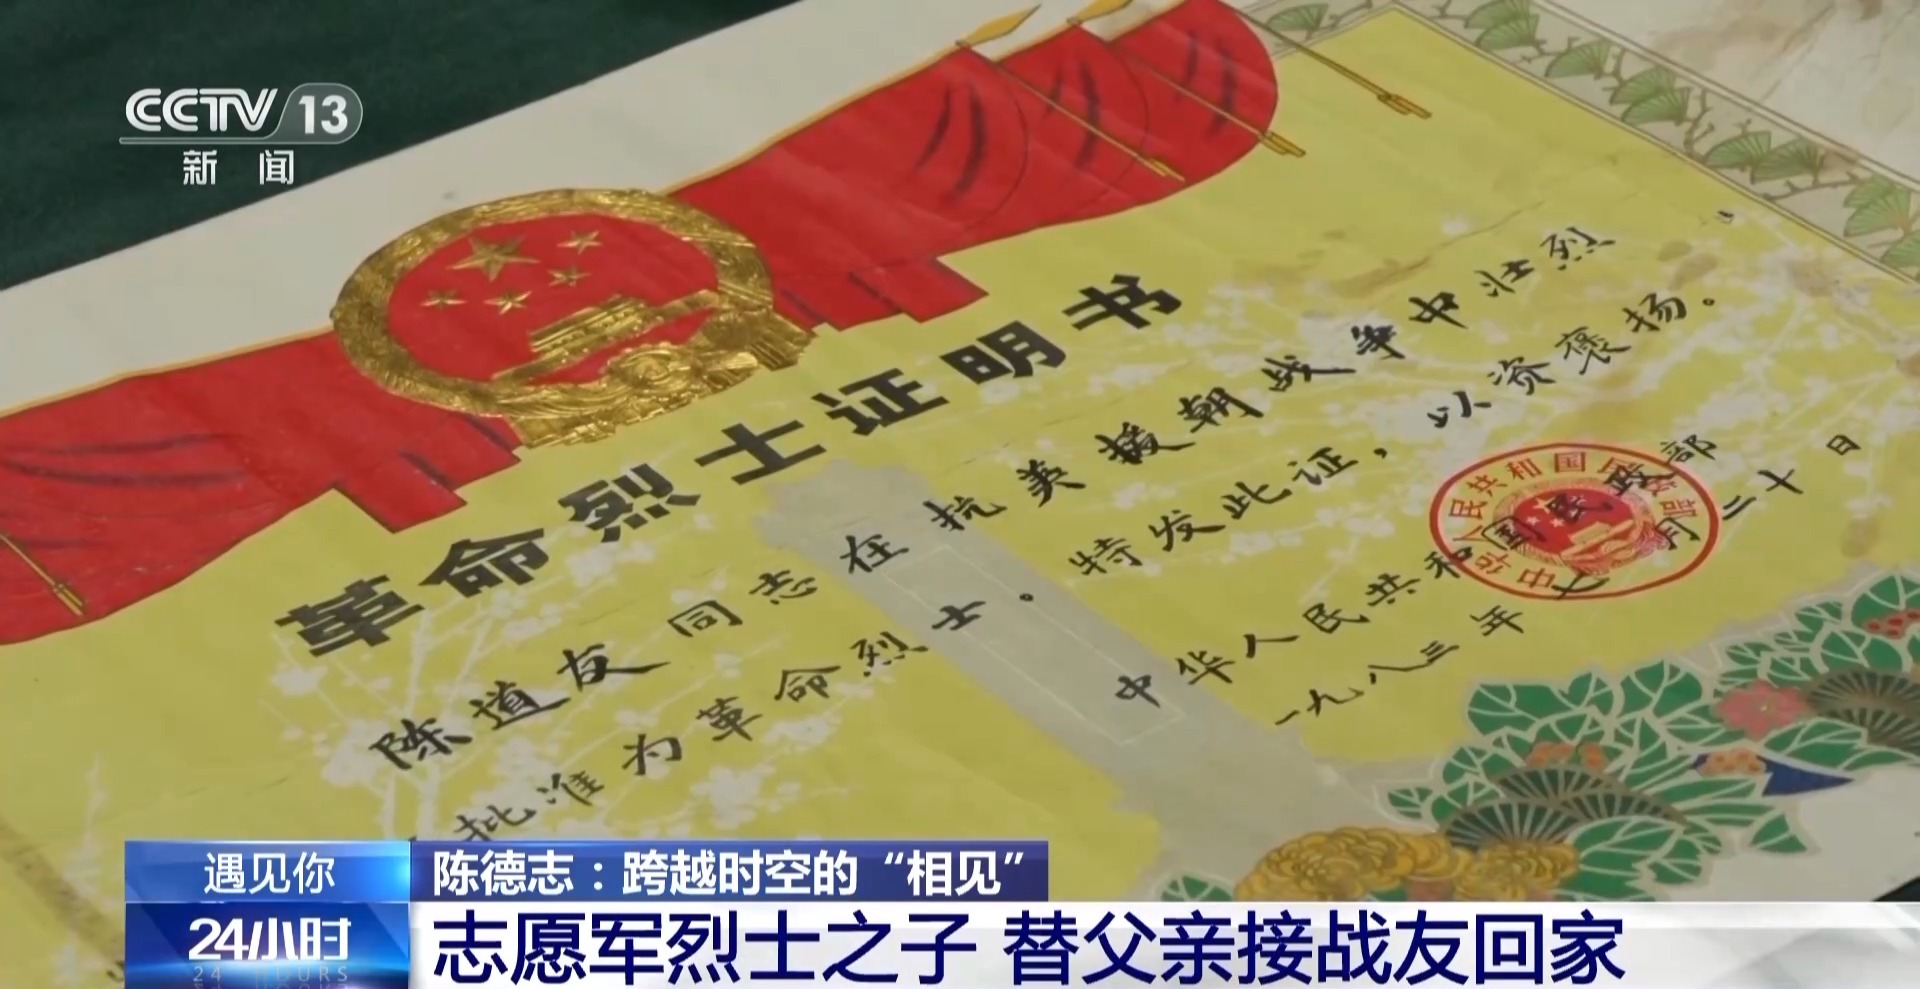 CCTV 13
新闻
革命烈士证明书
陈道友同志在抗美援朝战争中壮烈
批准为革命烈士。特发此证，以资褒扬。
中华人民共和国民政部
一九八三年七月二十日
中华人民共和国民政部
遇见你
陈德志：跨越时空的“相见”
24小时
24 HOURS
志愿军烈士之子 替父亲接战友回家